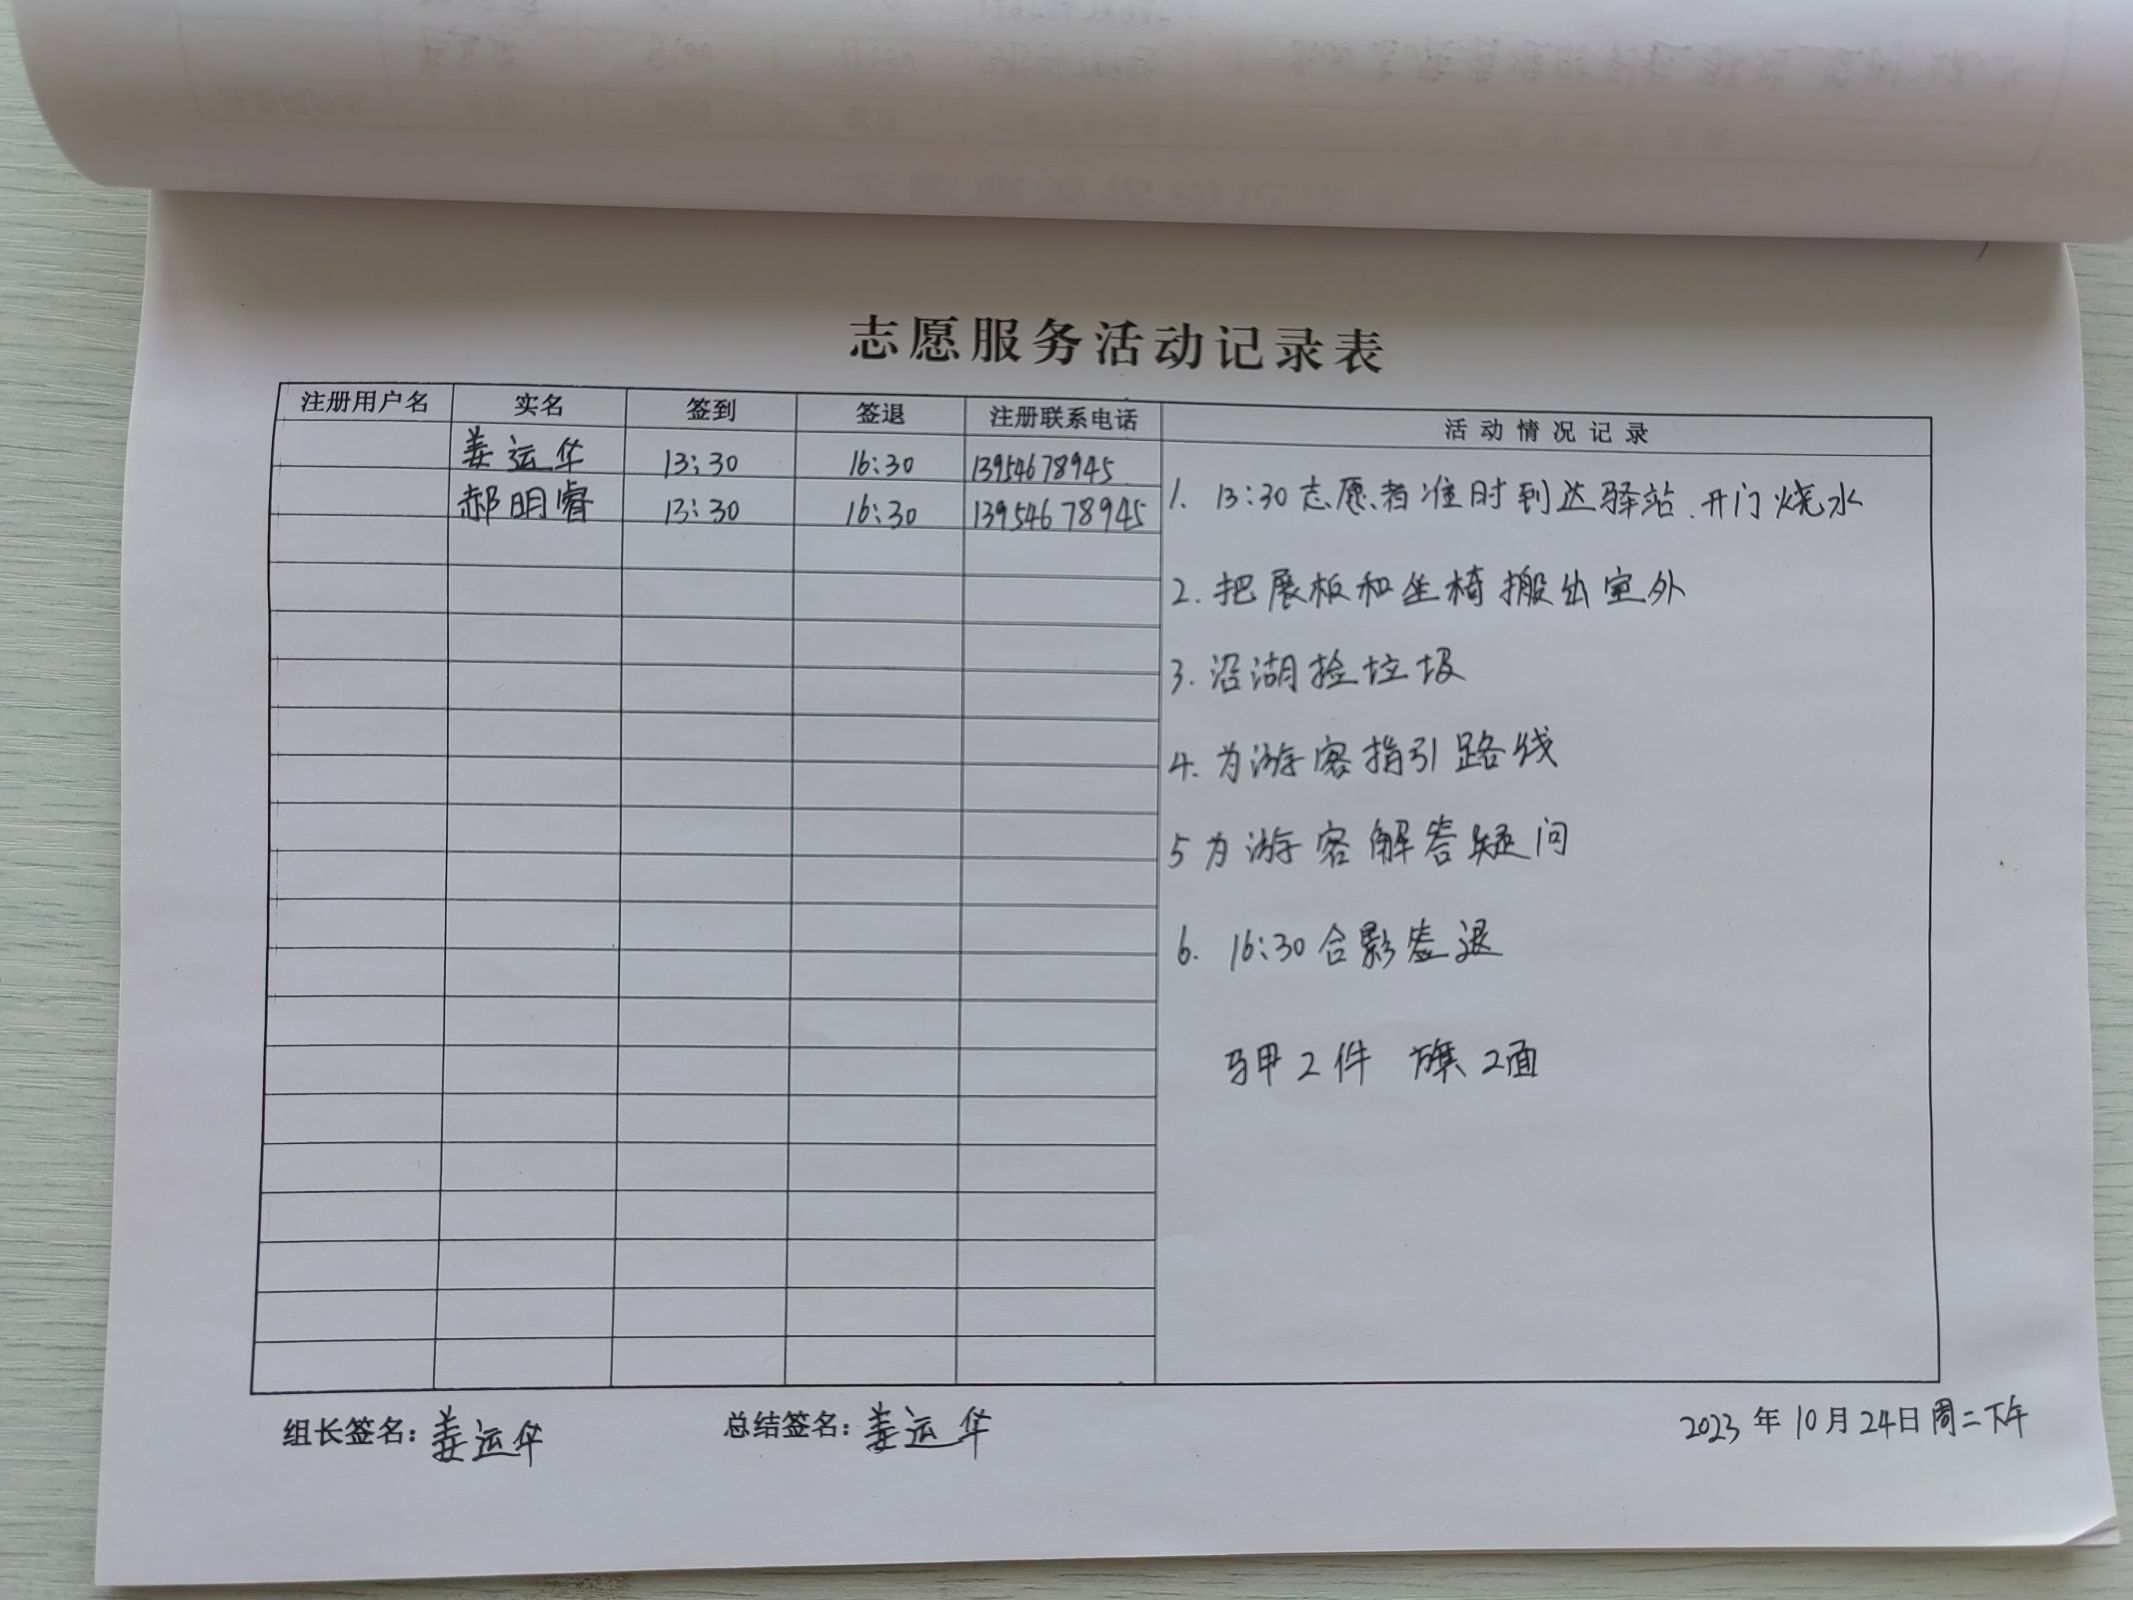 志愿服务活动记录表
注册用户名 实名 签到 签退 注册联系电话 活动情况记录
姜运华 13:30 16:30 13954678945
郝明睿 13:30 16:30 13954678945
1. 13:30志愿者准时到达驿站、开门烧水
2. 把展板和坐椅搬出室外
3. 沿湖捡垃圾
4. 为游客指引路线
5 为游客解答疑问
6. 16:30合影签退
马甲2件 旗2面
组长签名：姜运华 总结签名：姜运华 2023年10月24日周二下午